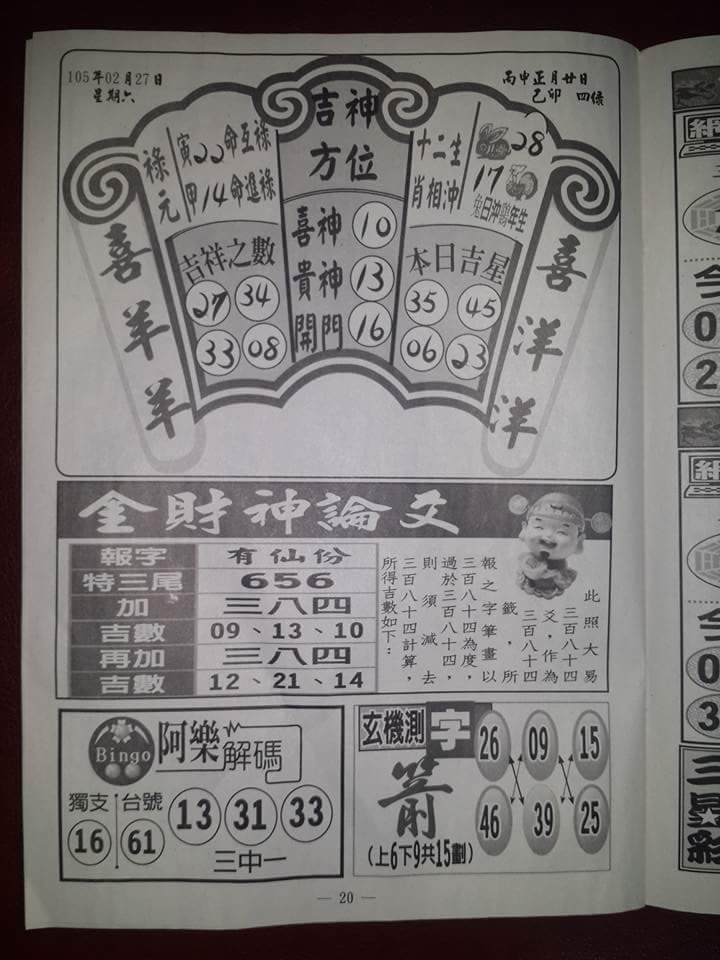 105年02月27日
星期六
丙申正月廿日
己卯 四綠
祿元
寅22命互祿
甲14命進祿
吉神
方位
十二生
肖相沖
28
17
兔日沖鷄年生
喜羊羊
吉祥之數
27 34
33 08
喜神 10
貴神 13
開門 16
本日吉星
35 45
06 23
喜洋洋
金財神論爻
報字 有仙份
特三尾 656
加 三八四
吉數 09、13、10
再加 三八四
吉數 12、21、14
此照大易
三百八十四
爻，作為
三百八十四
籤，所
報之字筆畫以
三百八十四為度，
過於三百八十四，
則須減去
三百八十四計算，
所得吉數如下：
Bingo
阿樂解碼
獨支 台號
16 61
13 31 33
三中一
玄機測字
箭
(上6下9共15劃)
26 09 15
46 39 25
— 20 —
今
0
2
今
0
3